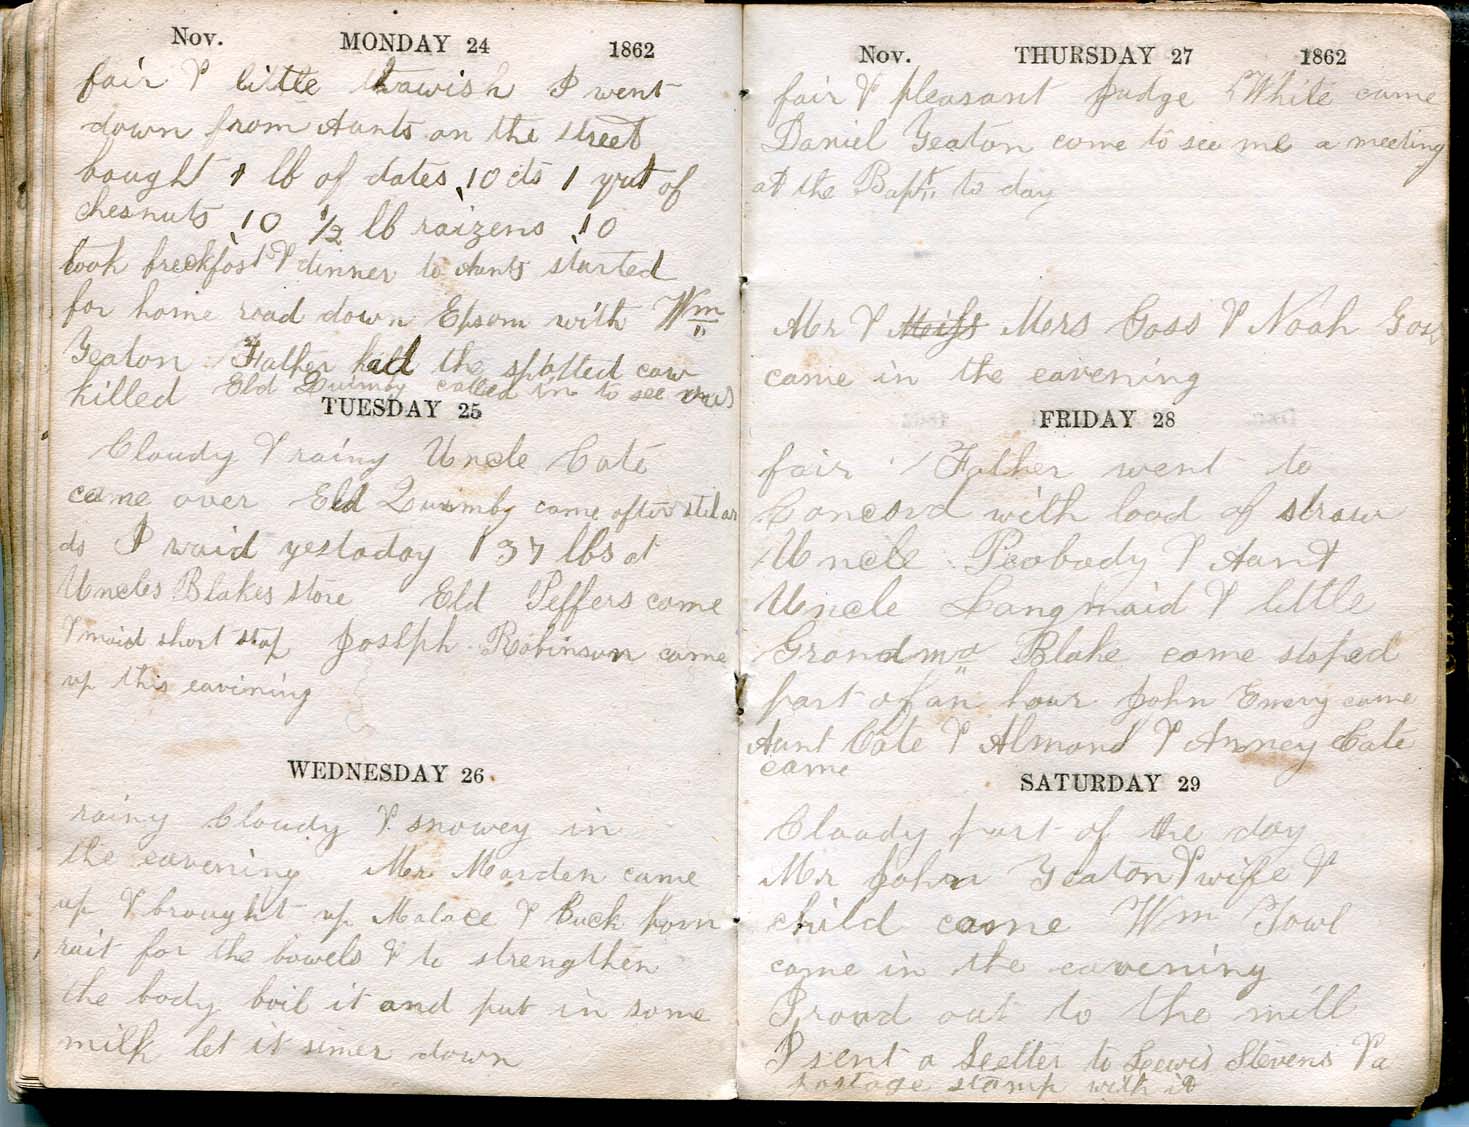 Nov. MONDAY 24 1862
fair & little thawish I went
down from Aunts on the street
bought 1 lb of dates .10 cts 1 qut of
chesnuts .10 1/2 lb raizens .10
took breckfost & dinner to Aunts started
for home road down Epsom with Wm
Yeaton Father had the spotted cow
killed Eld Quimby called in to see us
TUESDAY 25
Cloudy & rainy Uncle Cate
came over Eld Quimby came after stilar
ds I waid yestaday 137 lbs at
Uncles Blakes store Eld Peffers came
& maid short stop Joseph Robinson came
up this eavining
WEDNESDAY 26.
rainy Cloudy & snowey in
the eavening Mr Marden came
up & brought up Malace & Buck horn
rait for the bowels & to strengthen
the body boil it and put in some
milk let it simer down
Nov. THURSDAY 27 1862
fair & pleasant Judge White came
Daniel Yeaton come to see me a meeting
at the Bapt to day
Mr & Mrs Goss & Noah Goss
came in the eavening
FRIDAY 28
fair Father went to
Concord with load of straw
Uncle Peabody & Aunt
Uncle Langmaid & little
Grandma Blake came stoped
part of an hour John Emery came
Aunt Cate & Almond & Anney Cate
came
SATURDAY 29
Cloudy part of the day
Mr John Yeaton & wife &
child came Wm Towl
came in the eavening
I road out to the mill
I sent a Leetter to Lewis Stevens & a
postage stamp with it